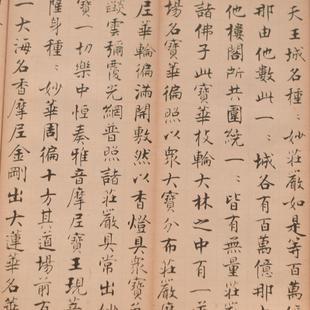 天王城名種﹕妙莊嚴如是等百萬億
那由他數此一﹕城各有百萬億那
他樓閣所共圍繞一﹕皆有無量莊
諸佛子此寶華枝輪大林之中有一道
場名寶華徧照以眾大寶分布莊嚴摩
尼華輪徧滿開敷然以香燈具眾寶
燄雲彌覆光網普照諸莊嚴具常出妙
寶一切樂中恒奏雅音摩尼寶王現菩
薩身種﹕妙華周徧十方其道場前
一大海名香摩尼金剛出大蓮華名華